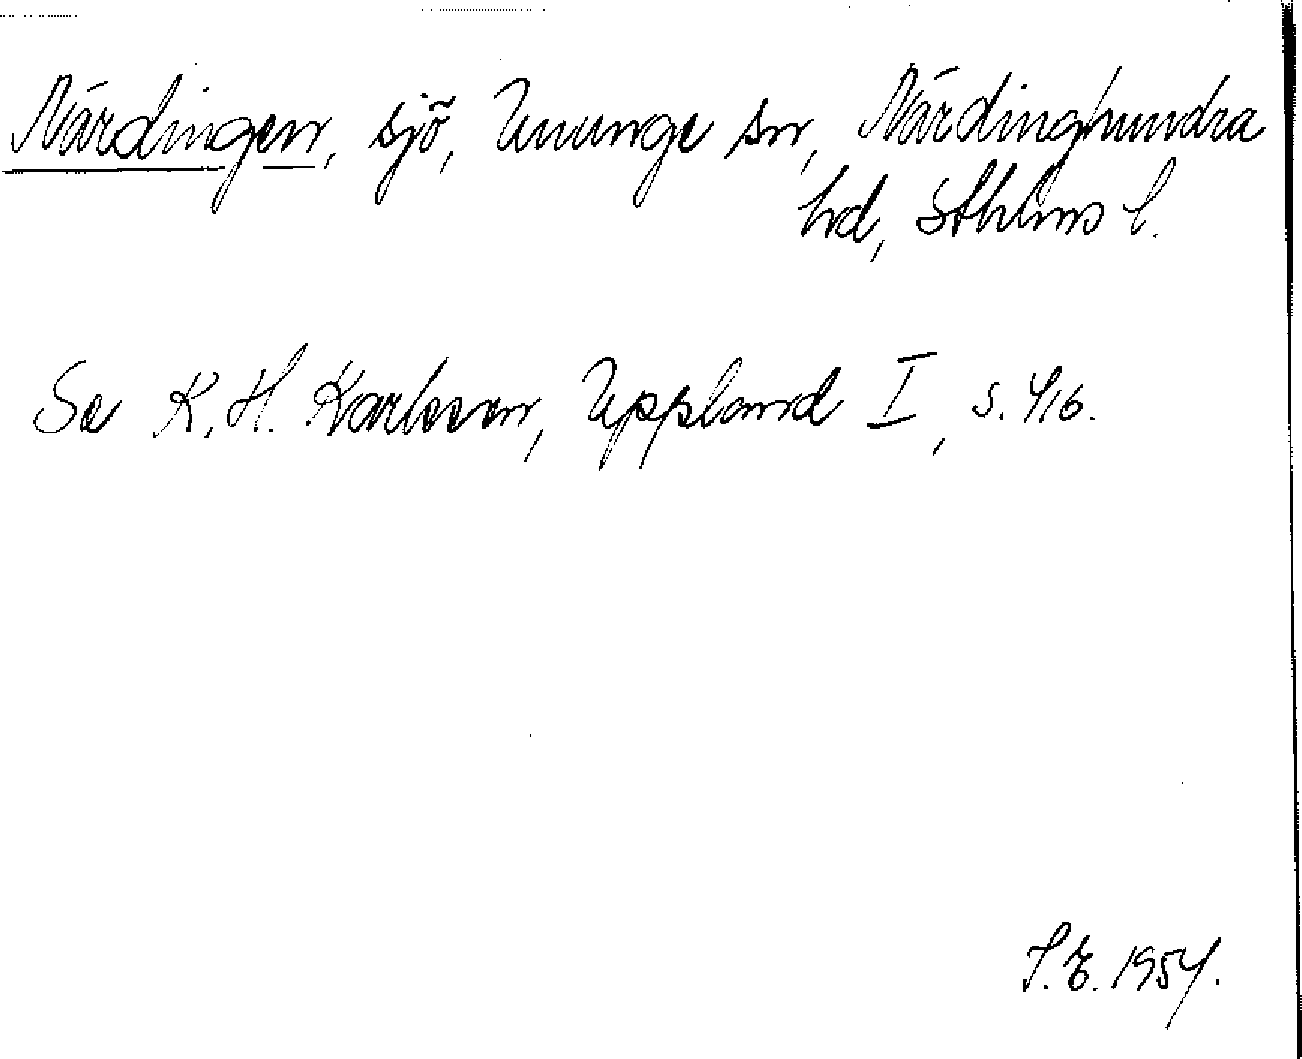 Närdingen, sjö, Ununge sn, Närdinghundra
hd, Sthlms l.
Se K.H. Karlsson, Uppland I, s. 416.
S.E. 1954.